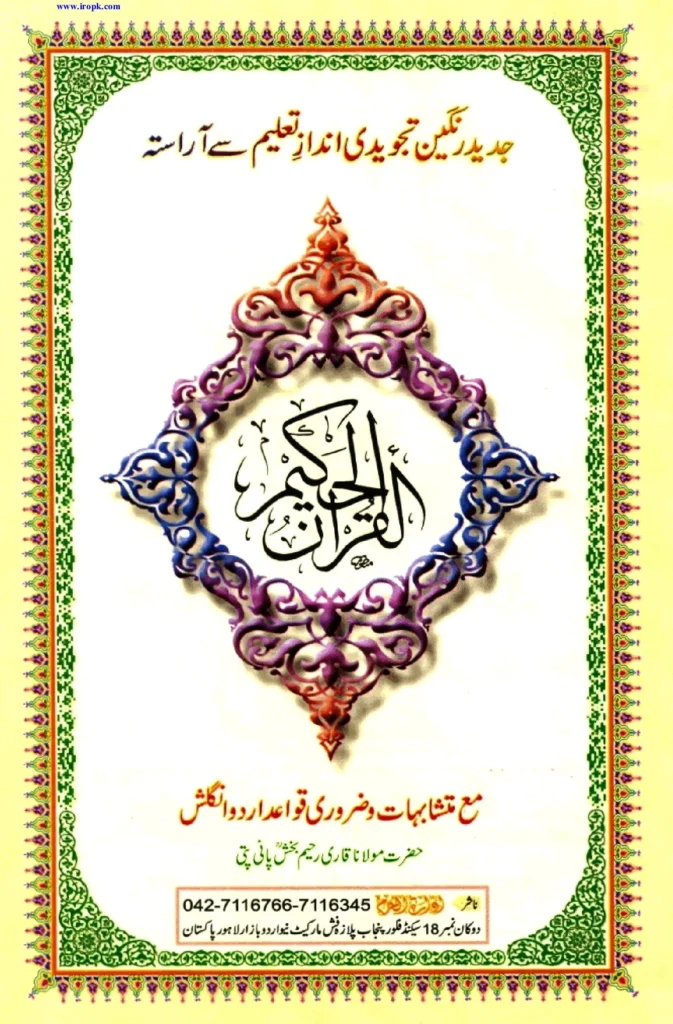 www.iropk.com
جدید رنگین تجویدی اندازِ تعلیم سے آراستہ
القرآن الحکیم
مع متشابہات و ضروری قواعد اردو انگلش
حضرت مولانا قاری رحیم بخش پانی پتی
ناشر 042-7116766-7116345
دوکان نمبر 18 سیکنڈ فلور پنجاب پلازہ فش مارکیٹ نیو اردو بازار لاہور پاکستان